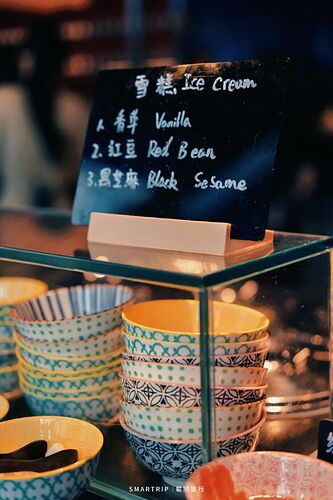 雪糕 Ice Cream
1. 香草 Vanilla
2. 紅豆 Red Bean
3. 黑芝麻 Black Sesame
SMARTRIP | 聪明旅行